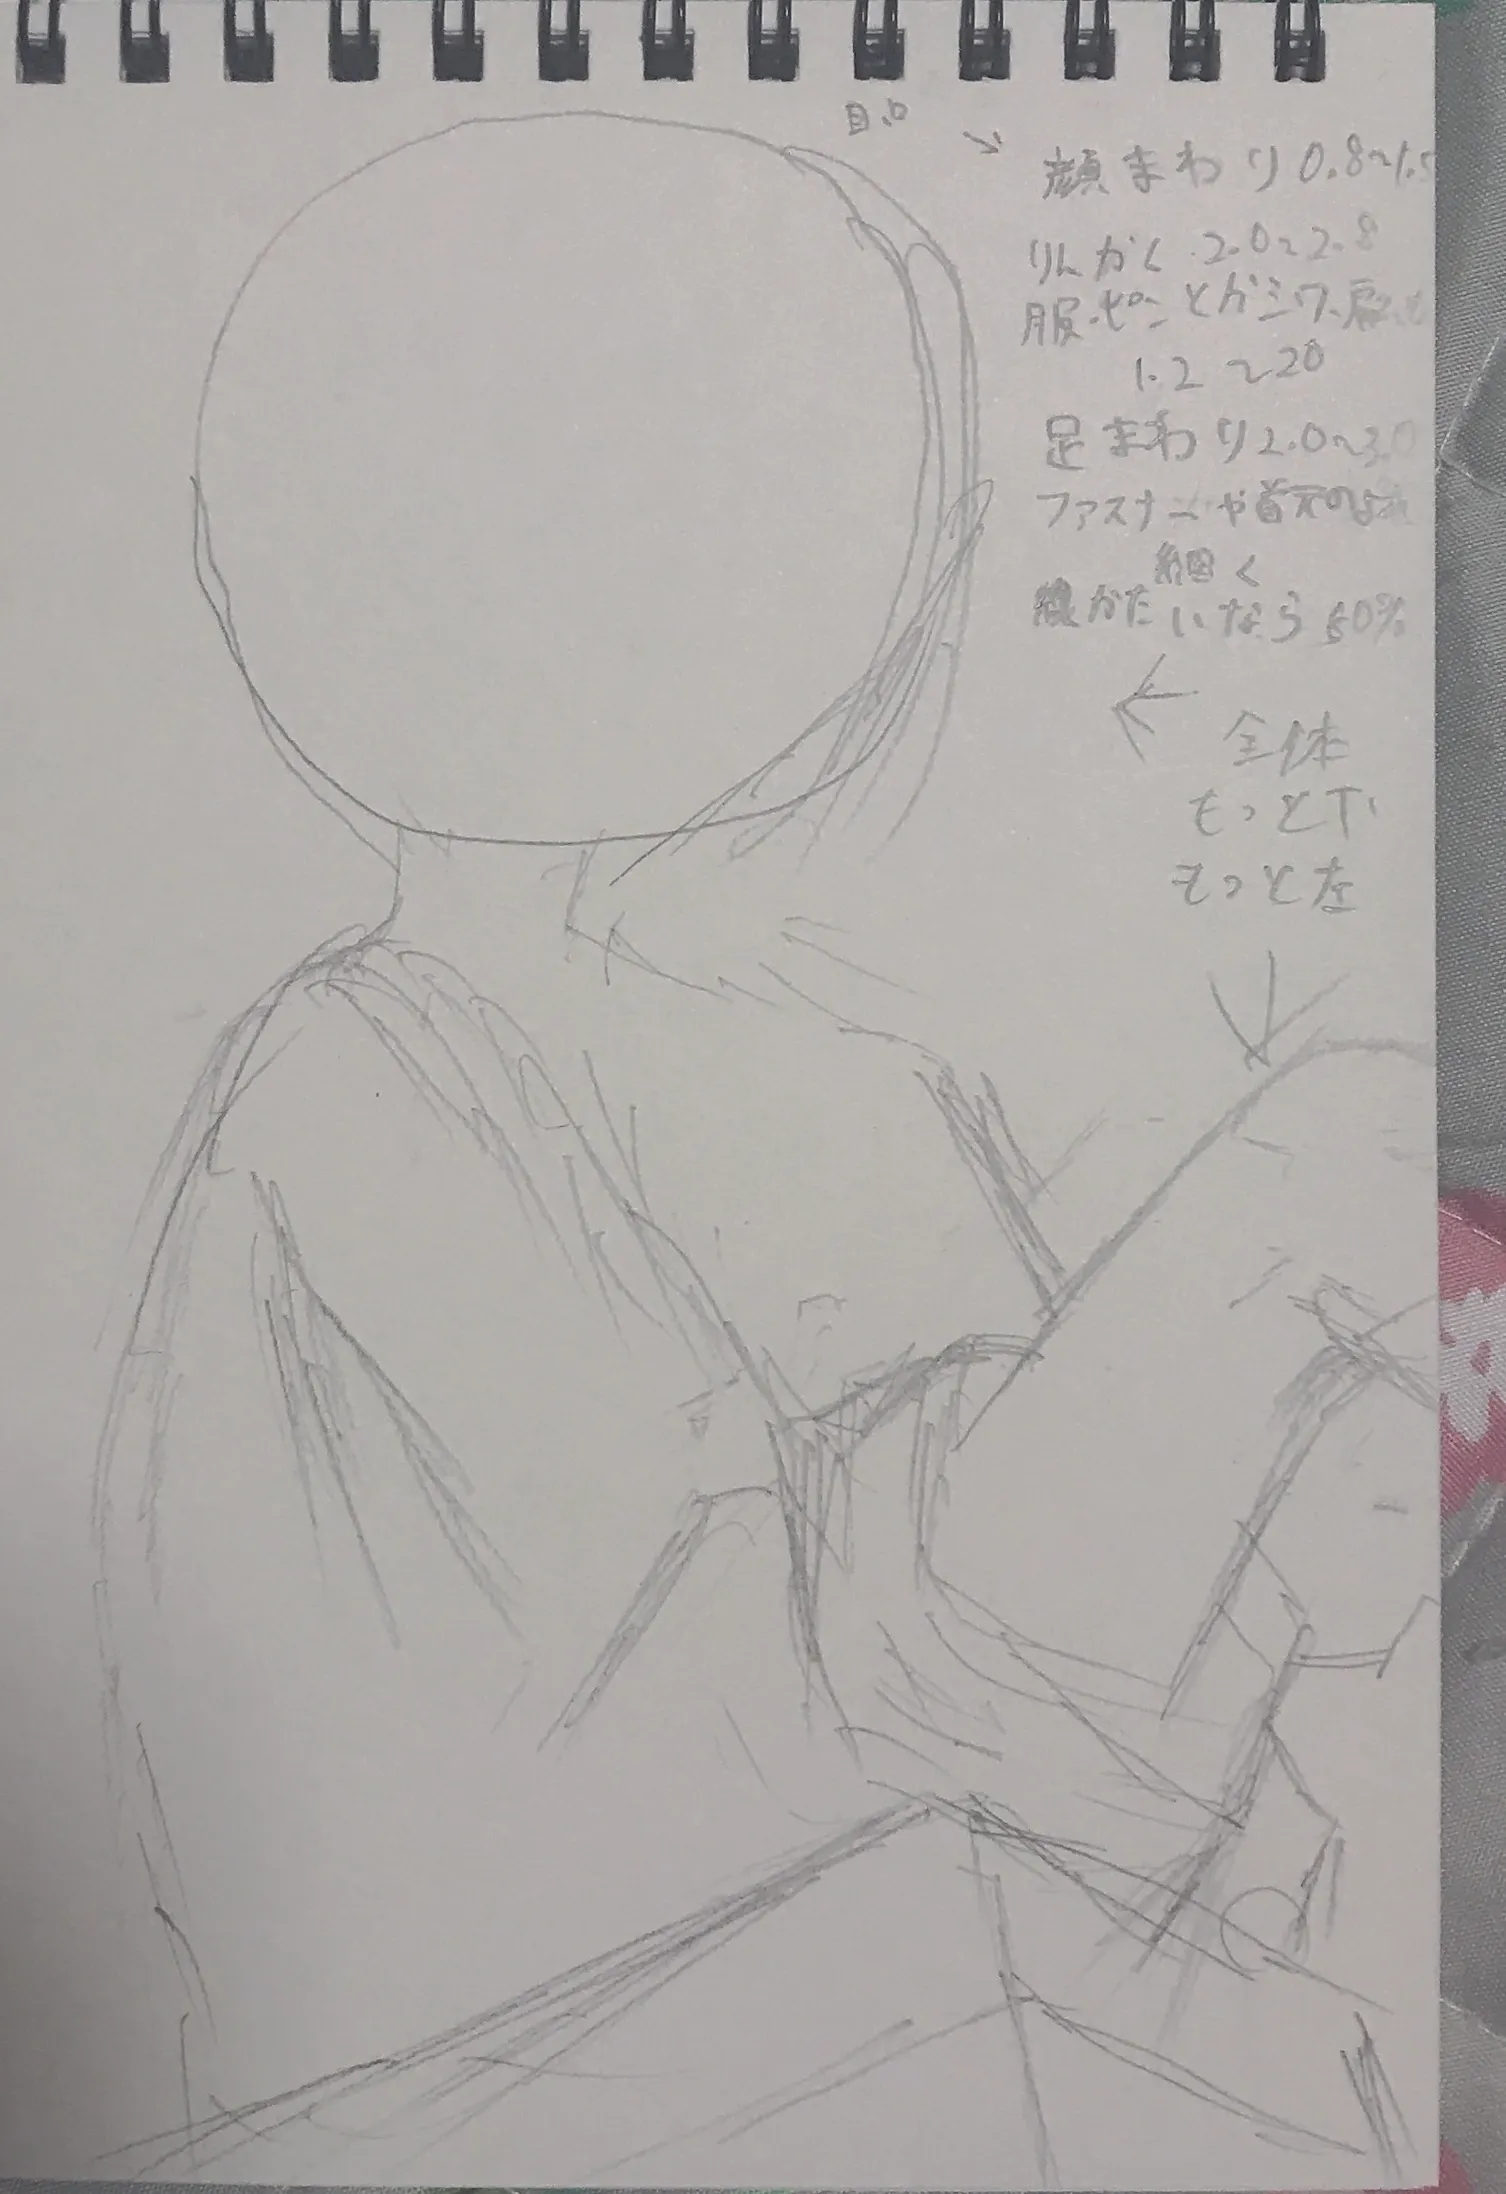 目.口
顔まわり0.8〜1.5
りんかく 2.0〜2.8
服.ピンとがシワ.
1.2〜20
足まわり2.0〜3.0
ファスナーや首元の
細く
線かたいなら50%
全体
もっと下
もっと左